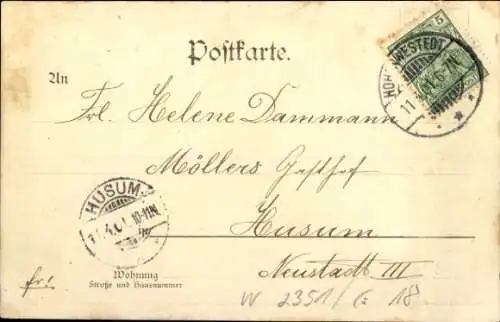 Postkarte.
5
HOHENWESTEDT
6-7N.
11
An
Frl. Helene Dammann
Möllers Gasthof
HUSUM.
11.4.01. 10-11N.
Husum
Neustadt III
Wohnung
Straße und Hausnummer
fr.
W 2351 / G 18